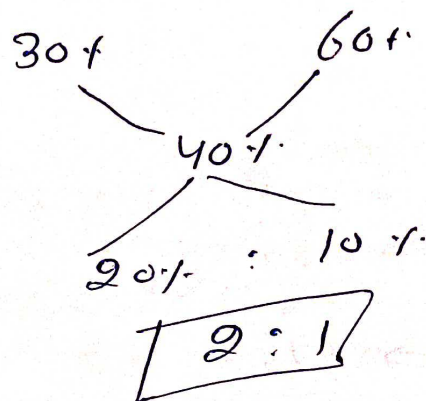 30% 60%
40%
20% : 10%
2 : 1